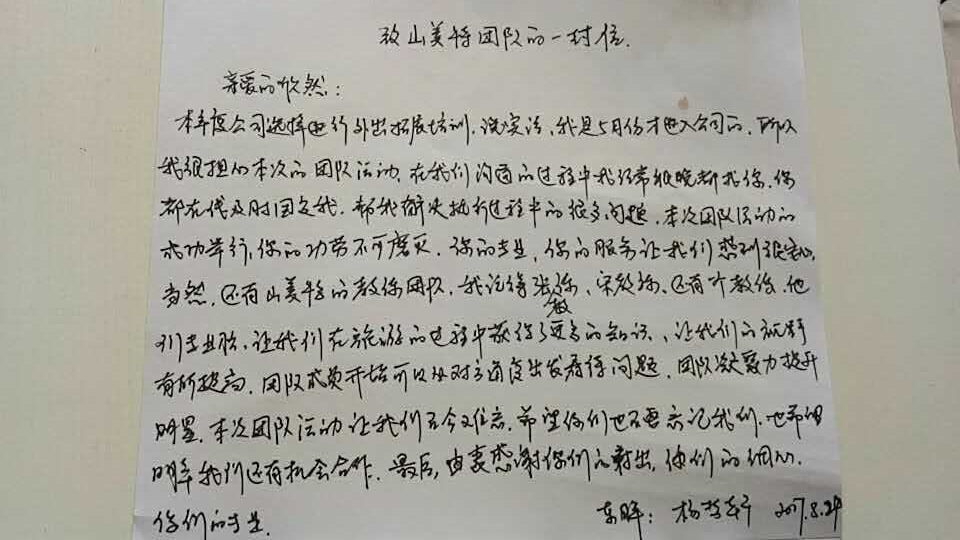 致山美特团队的一封信.
亲爱的悠然:
本年度公司选择进行外出拓展培训.说实话,我是5月份才进入公司的.所以
我很担心本次的团队活动.在我们沟通的过程中我经常很晚都找你.你
都在及时回复我.帮我解决执行过程中的很多问题.本次团队活动的
成功举行,你的功劳不可磨灭.你的专业,你的服务让我们感到很安心.
当然,还有山美特的教练团队.我记得张教练、宋教练、还有个教练.他
们专业性,让我们在旅游的过程中获得了更多的知识、让我们的视野
有所提高.团队成员开始可以从对方角度出发看待问题.团队凝聚力提升
明显.本次团队活动让我们至今难忘.希望你们也不要忘记我们.也希望
明年我们还有机会合作.最后,由衷感谢你们的付出,你们的细心.
你们的专业. 2017.8.24